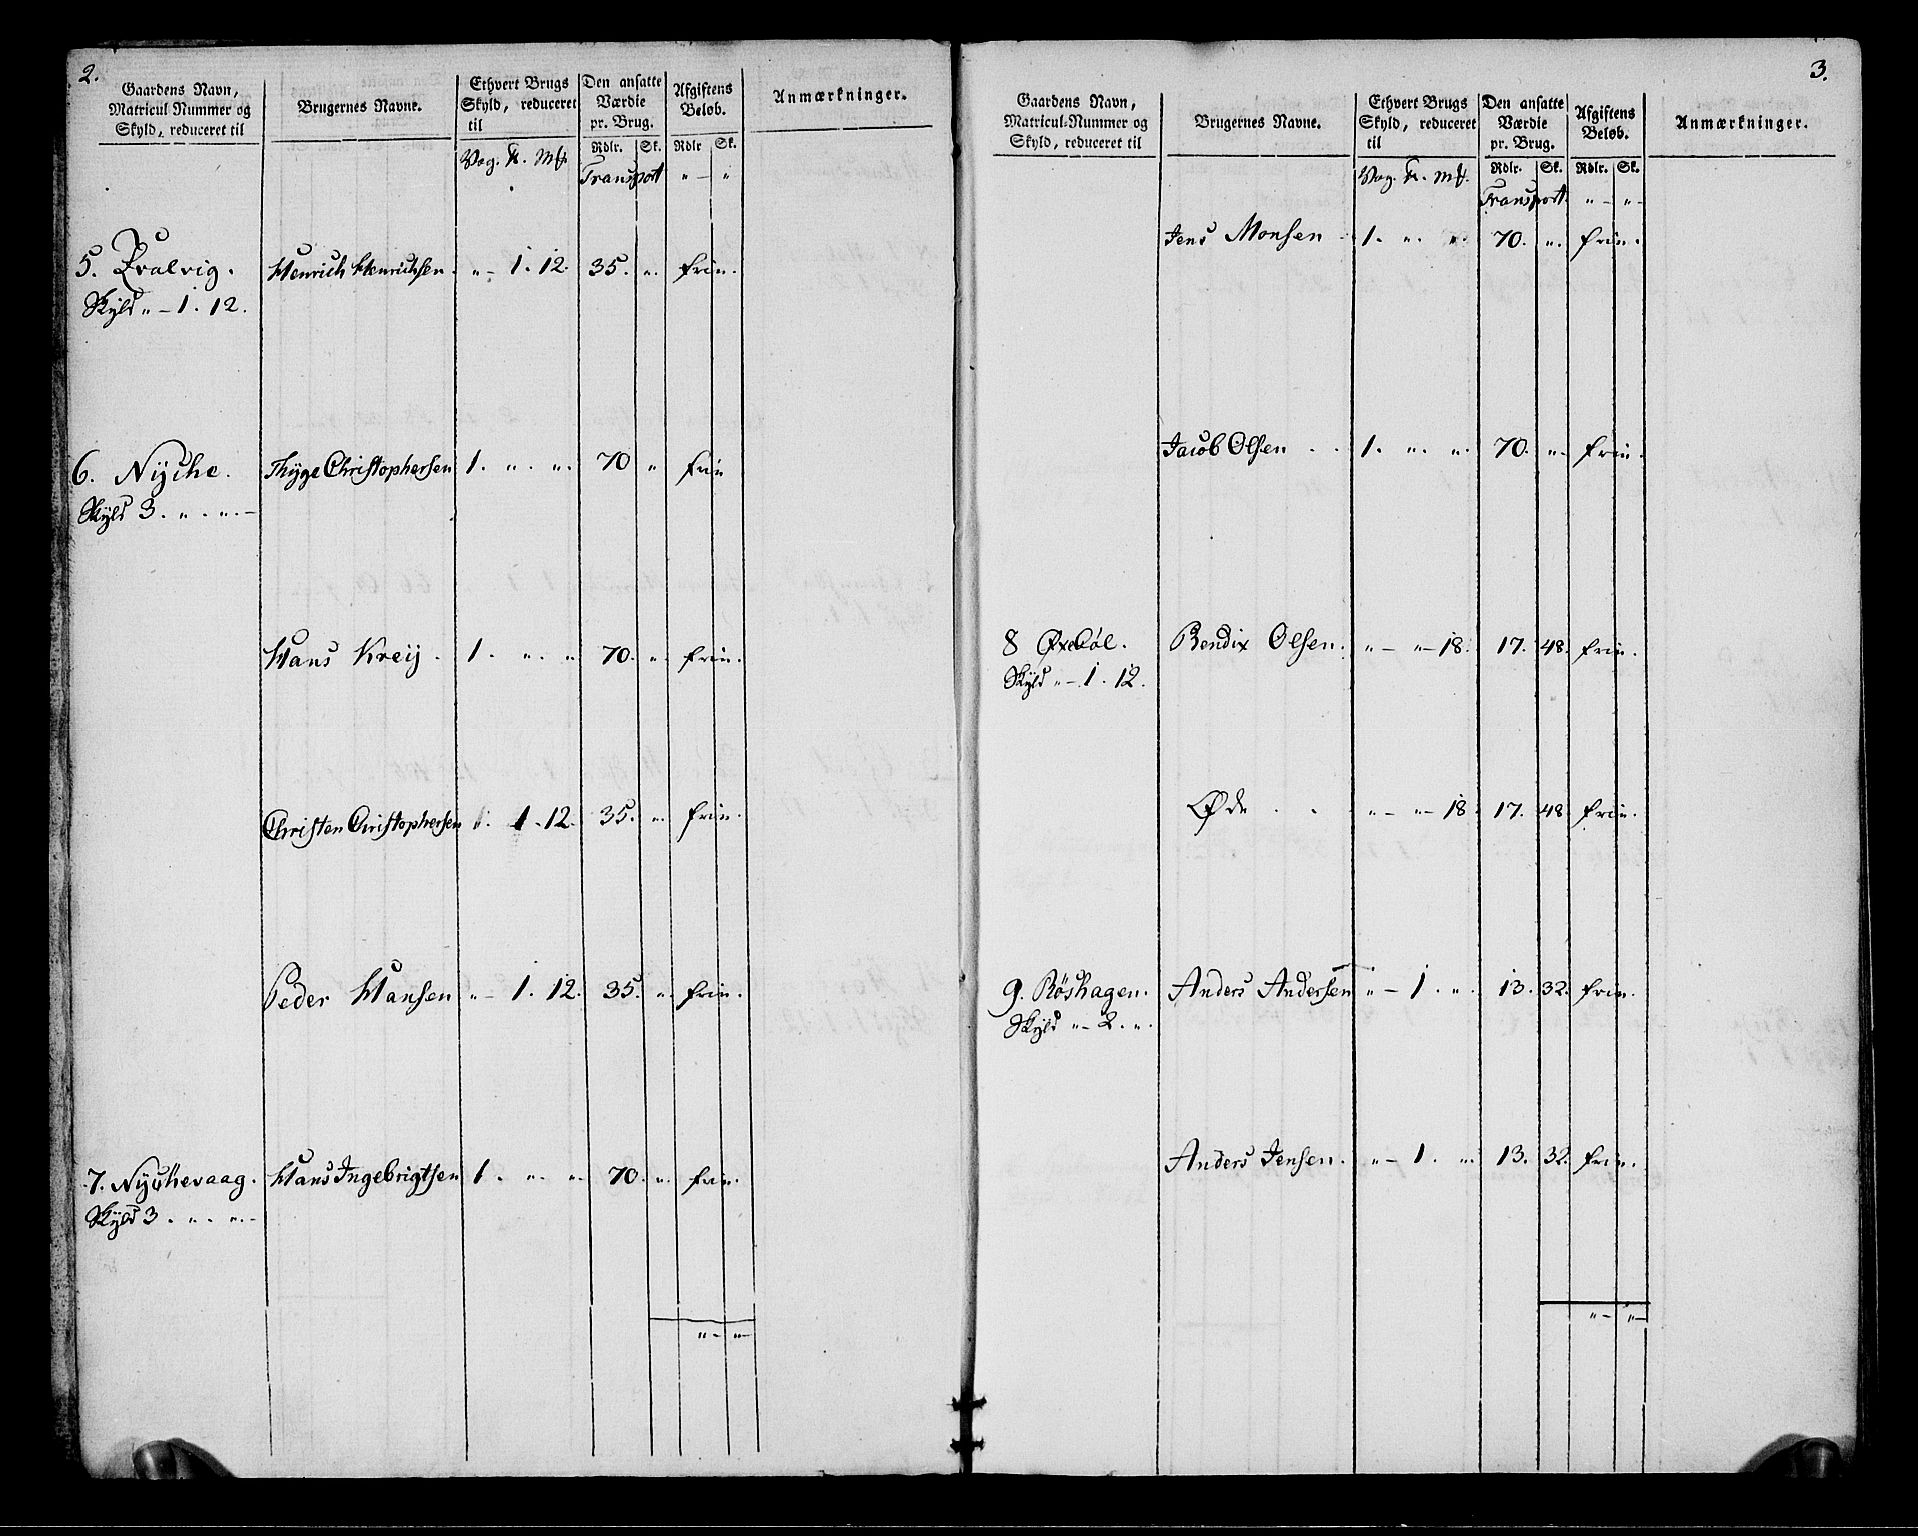 2.
Gaardens Navn,
Matricul Nummer og
Skyld, reduceret til
Brugernes Navne.
Ethvert Brugs
Skyld, reduceret
til
Den ansatte
Værdie
pr. Brug.
Afgiftens
Beløb.
Anmærkninger.
Rdlr. Sk. Rdlr Sk.
Vog. Mk.
Transport " — "
5. Qvalvig. Henrich Henrichsen. " — 1. 12. 35. ". frie.
Skyld " — 1. 12.
6. Nyche. Thyge Christophersen 1. ". ". 70 " frie
Skyld 3. ". ". —
Hans Kreij. 1. ". " 70. ". frie.
Christen Christophersen 1. 12. 35. ". frie.
Peder Hansen " — 1. 12. 35. ". frie.
7. Nychevaag. Hans Ingebrigtsen 1. ". ". 70. ". frie.
Skyld 3. ". ". —
" — " —
3.
Gaardens Navn,
Matricul-Nummer og
Skyld, reduceret til
Brugernes Navne.
Ethvert Brugs
Skyld, reduceret
til
Den ansatte
Værdie
pr. Brug.
Afgiftens
Beløb.
Anmærkninger.
Rdlr. Sk. Rdlr. Sk.
Vog. Mk.
Transport. " — " —
Jens Monsen 1. ". ". 70. ". frie.
Jacob Olsen . . 1. ". ". 70. ". frie.
8 Øxebøl. Bendix Olsen. " — " — 18. 17. 48. frie.
Skyld " — 1. 12.
Øde . . " — " — 18. 17. 48. frie.
9. Røshagen. Anders Andersen " — 1. ". 13. 32. frie.
Skyld " — 2. ".
Anders Jensen. " — 1. ". 13. 32. frie.
" — " —